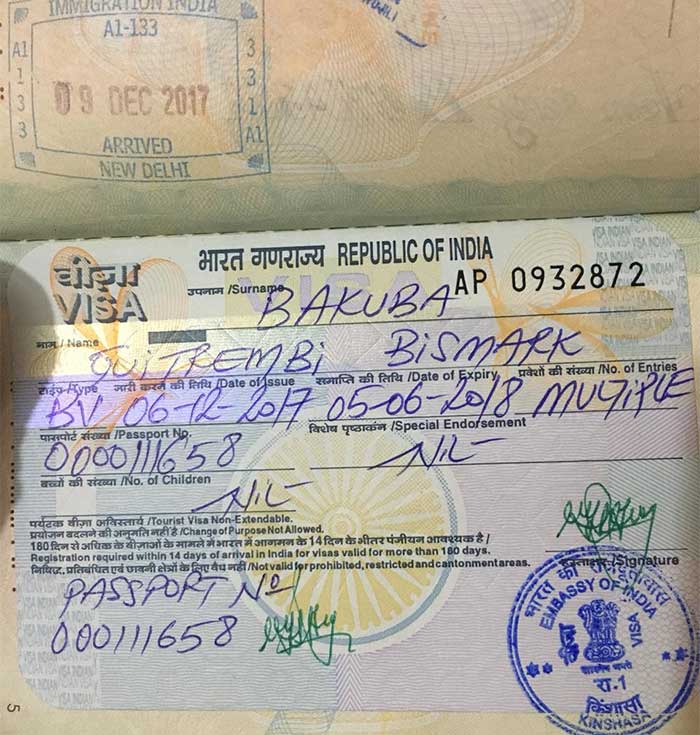 IMMIGRATION INDIA
A1-133
A1 3
1 3
3 1
3 A1
09 DEC 2017
ARRIVED
NEW DELHI
भारत गणराज्य REPUBLIC OF INDIA
वीज़ा
VISA
AP 0932872
उपनाम /Surname BAKUBA
नाम / Name BISMARK
टाईप/Type जारी करने की तिथि /Date of Issue समाप्ति की तिथि /Date of Expiry प्रवेशों की संख्या /No. of Entries
BV 06-12-2017 05-06-2018 MULTIPLE
पासपोर्ट संख्या /Passport No. विशेष पृष्ठाकंन /Special Endorsement
0000111658 NIL-
बच्चों की संख्या /No. of Children
NIL-
पर्यटक वीज़ा अविस्तार्य /Tourist Visa Non-Extendable.
प्रयोजन बदलने की अनुमति नहीं है /Change of Purpose Not Allowed.
180 दिन से अधिक के वीज़ाओं के मामले में भारत में आगमन के 14 दिन के भीतर पंजीयन आवश्यक है /
Registration required within 14 days of arrival in India for visas valid for more than 180 days.
निषिद्ध, प्रतिबंधित एवं छावनी क्षेत्रों के लिए वैध नहीं /Not valid for prohibited, restricted and cantonment areas.
हस्ताक्षर /Signature
PASSPORT No
000111658
EMBASSY OF INDIA
वीज़ा VISA
रा.1
किंशासा
KINSHASA
5